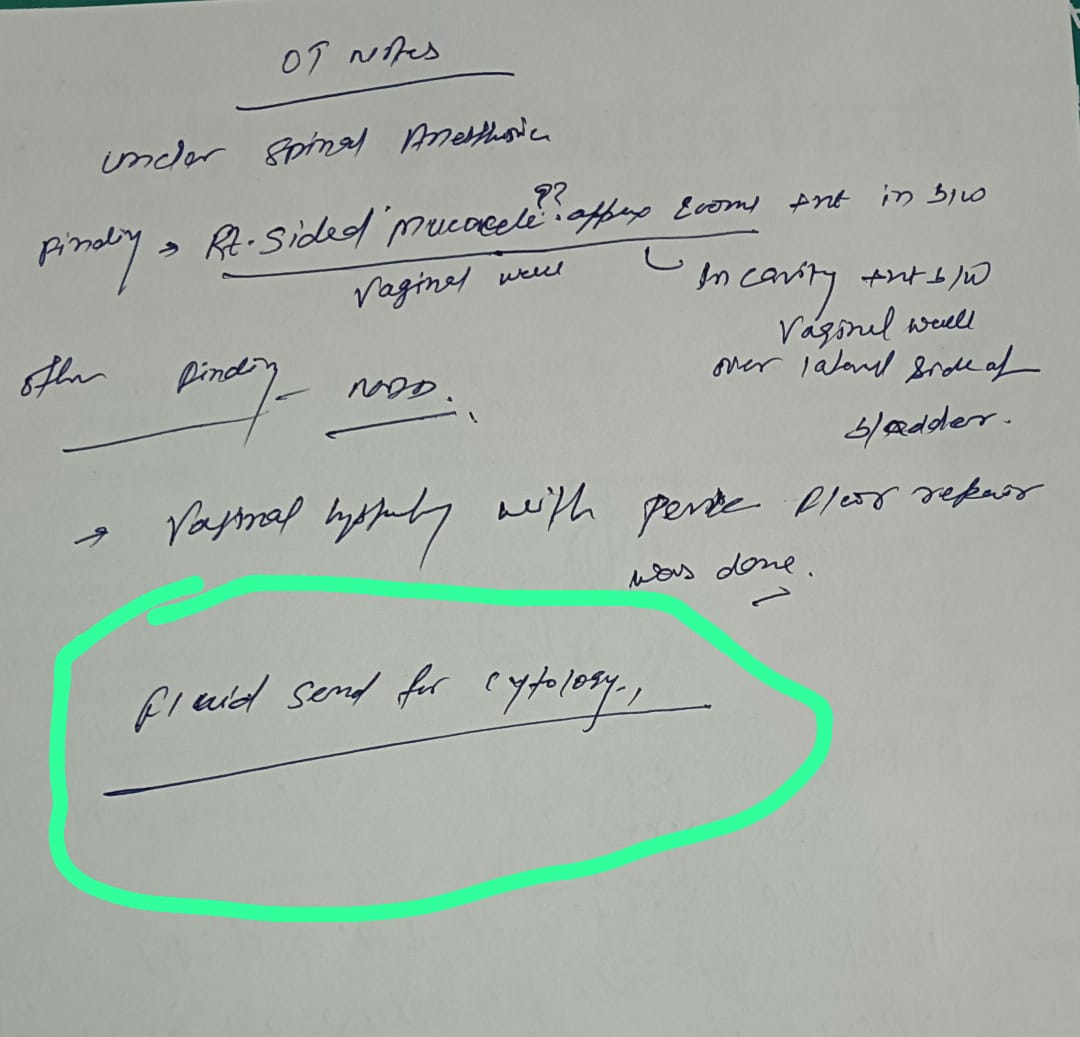 OT Notes
under spinal Anesthesia
Finding → Rt. Sided "mucocele"?? approx 200ml +nt in b/w
vaginal wall
In cavity +nt b/w
vaginal wall
over lateral side of
bladder.
other finding - NAD.
→ Vaginal with floor repair
was done.
fluid send for cytology.